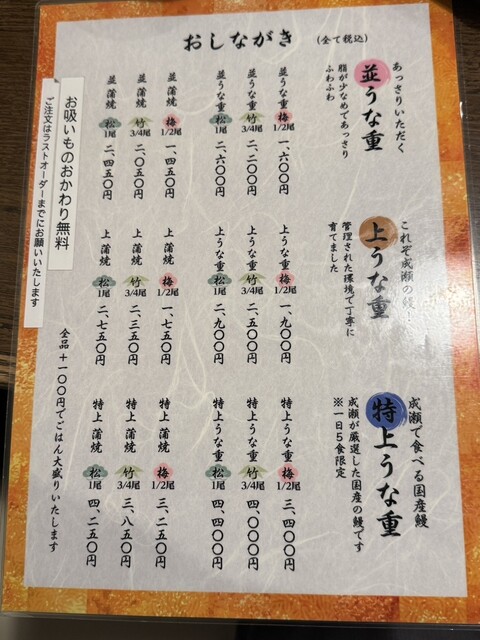 おしながき
(全て税込)
あっさりいただく
並うな重
脂が少なめであっさり
ふわふわ
並うな重 梅 1/2尾 一、六〇〇円
並うな重 竹 3/4尾 二、二〇〇円
並うな重 松 1尾 二、六〇〇円
並蒲焼 梅 1/2尾 一、四五〇円
並蒲焼 竹 3/4尾 二、〇五〇円
並蒲焼 松 1尾 二、四五〇円
これぞ成瀬の鰻!
上うな重
管理された環境で丁寧に
育てました
上うな重 梅 1/2尾 一、九〇〇円
上うな重 竹 3/4尾 二、五〇〇円
上うな重 松 1尾 二、九〇〇円
上蒲焼 梅 1/2尾 一、七五〇円
上蒲焼 竹 3/4尾 二、三五〇円
上蒲焼 松 1尾 二、七五〇円
成瀬で食べる国産鰻
特上うな重
成瀬が厳選した国産の鰻です
※一日5食限定
特上うな重 梅 1/2尾 三、四〇〇円
特上うな重 竹 3/4尾 四、〇〇〇円
特上うな重 松 1尾 四、四〇〇円
特上蒲焼 梅 1/2尾 三、二五〇円
特上蒲焼 竹 3/4尾 三、八五〇円
特上蒲焼 松 1尾 四、二五〇円
お吸いものおかわり無料
ご注文はラストオーダーまでにお願いいたします
全品+一〇〇円でごはん大盛りいたします